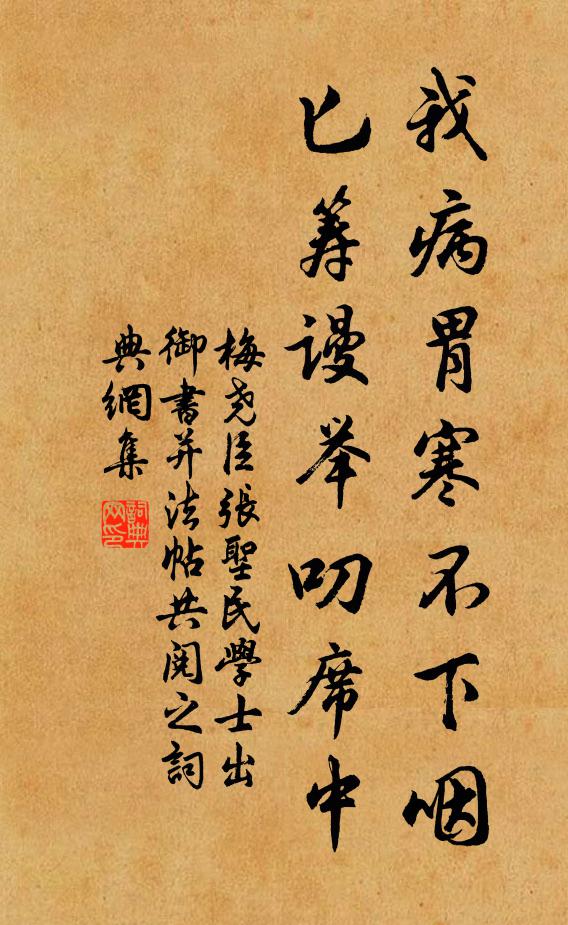 我病胃寒不下咽
已筭謾举叨席中
梅尧臣張聖民學士出
御書并法帖共閱之詞
典網集
詞典
网印